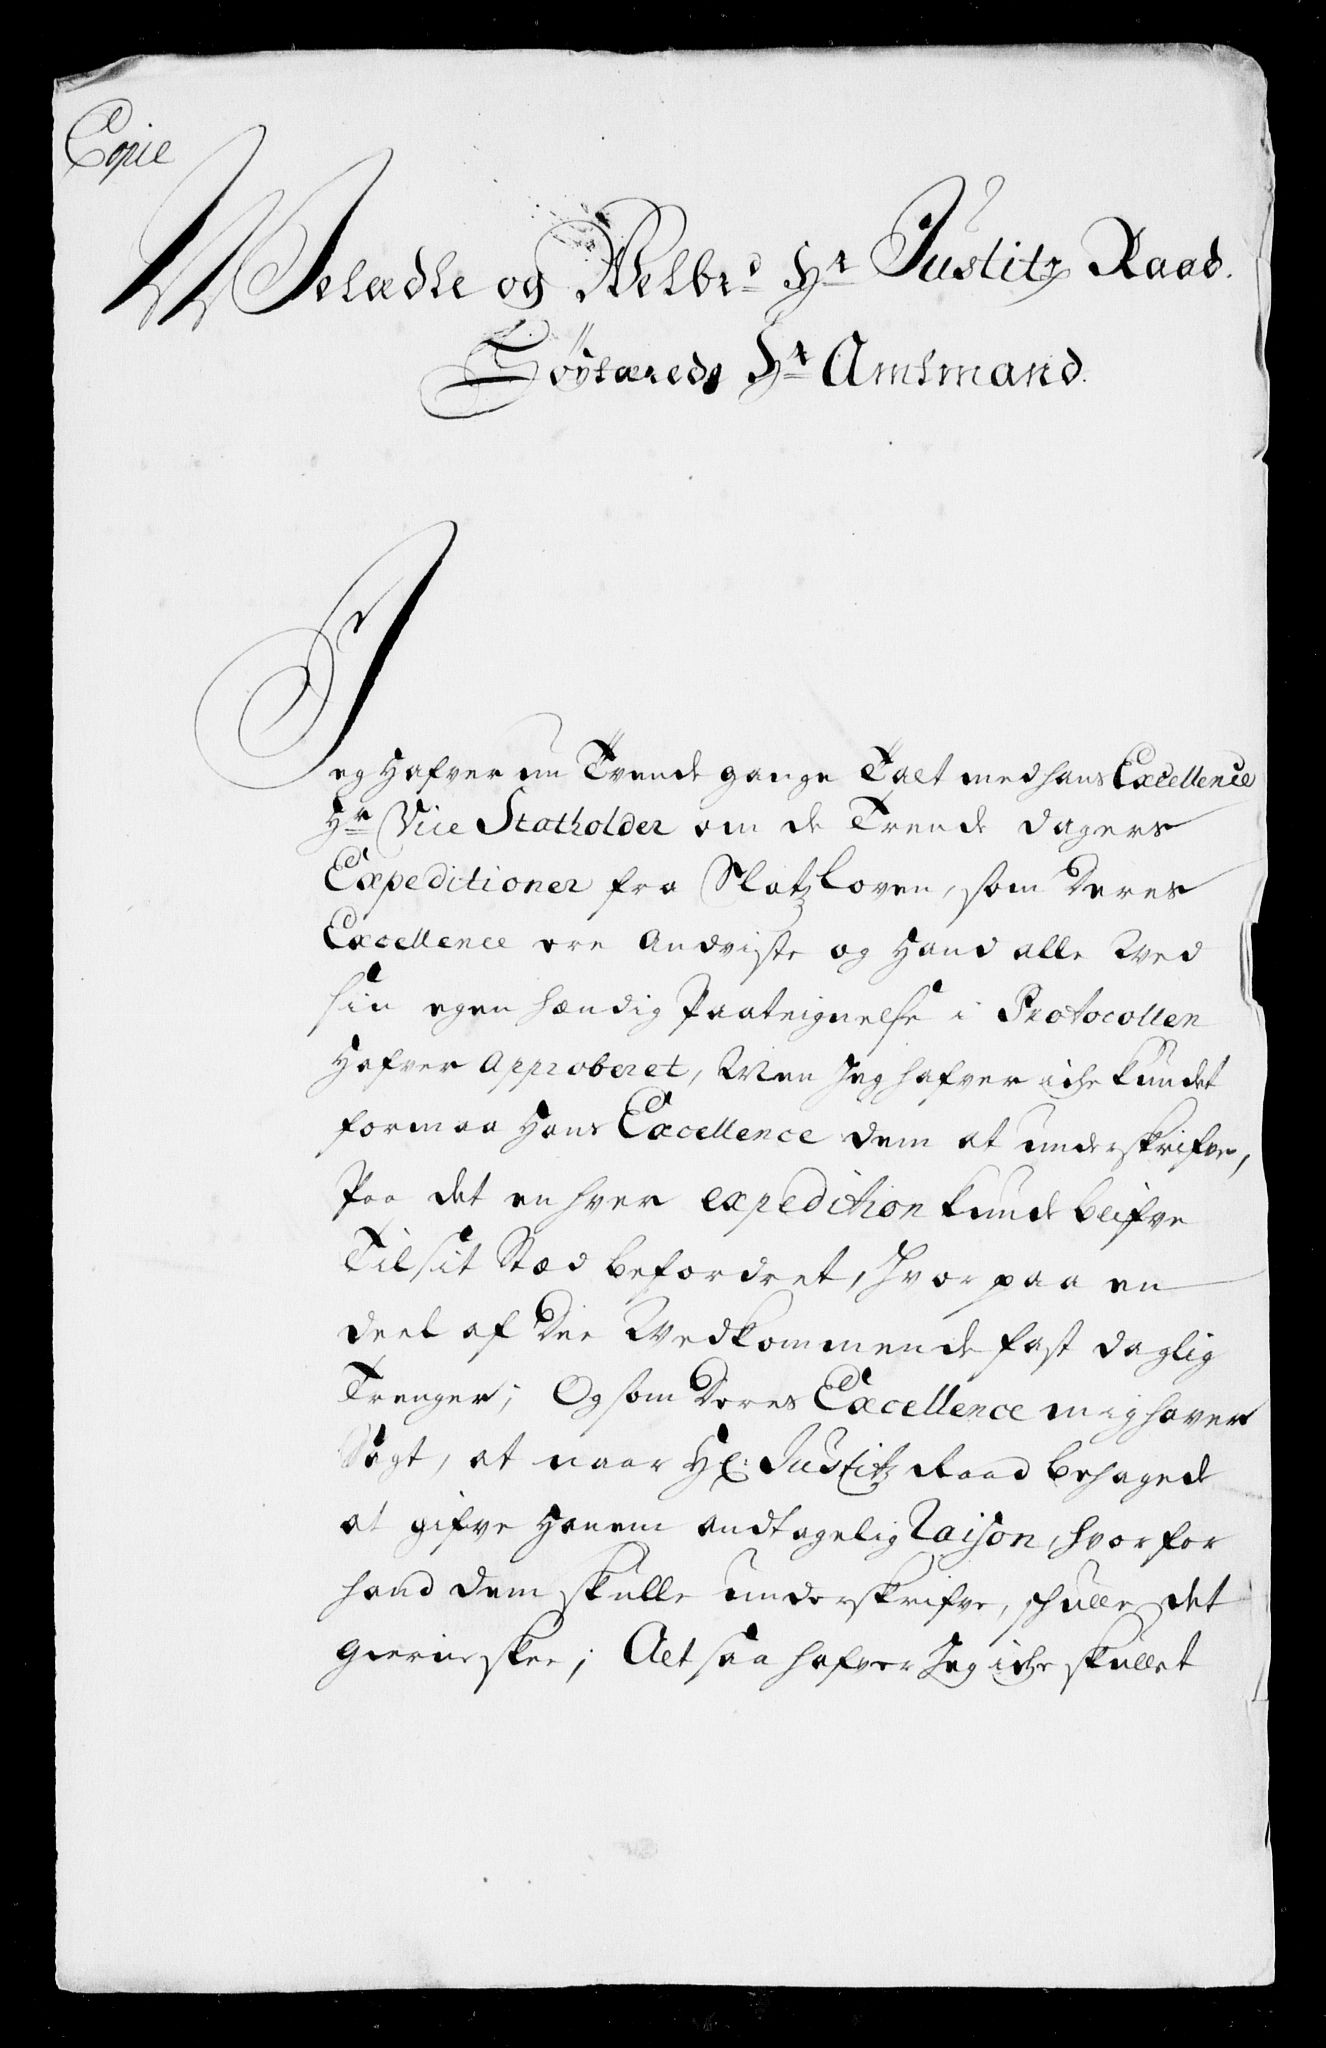 Copie
Welædle og Welbrd Hr Justitz Raad.
Høylærede Hr Amtmand.
Jeg Hafver nu Tvende gange Talt med hans Excellence
Hr Vice Statholder om de Trende dagers
Expeditioner fra Slotz Loven, som Deres
Excellence ere Andviste og Hand alle Ved
sin egenhændig Paateignelse i Protocollen
Hafver Approberet, Men Jeg hafver iche kundet
formaa Hans Excellence dem at underskrifve,
Paa det enhver expedition kunde blifve
Til sit Stæd befordret, hvorpaa en
deel af Die Vedkommende fast daglig
Trenger; Og som Deres Excellence mig haver
Sagt, at naar Hr: Justitz Raad behagede
at gifve Hanem andtagelig Raison, hvorfor
hand dem skulle underskrifve, schulle det
gierne skee; Alt saa hafver Jeg iche skullet